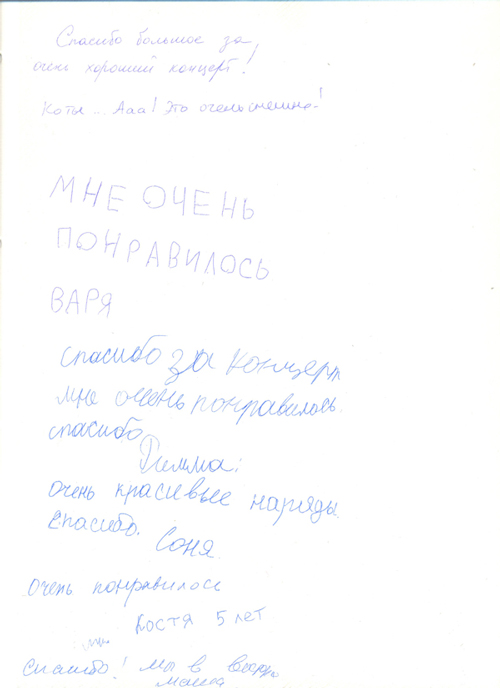 Спасибо большое за
очень хороший концерт!
Коты... Ааа! Это очень смешно!
МНЕ ОЧЕНЬ
ПОНРАВИЛОСЬ
ВАРЯ
спасибо за концерт
мне очень понравилось.
спасибо
Римма:
очень красивые наряды.
Спасибо.
Соня
Очень понравилось
Костя 5 лет
Спасибо! Мы в